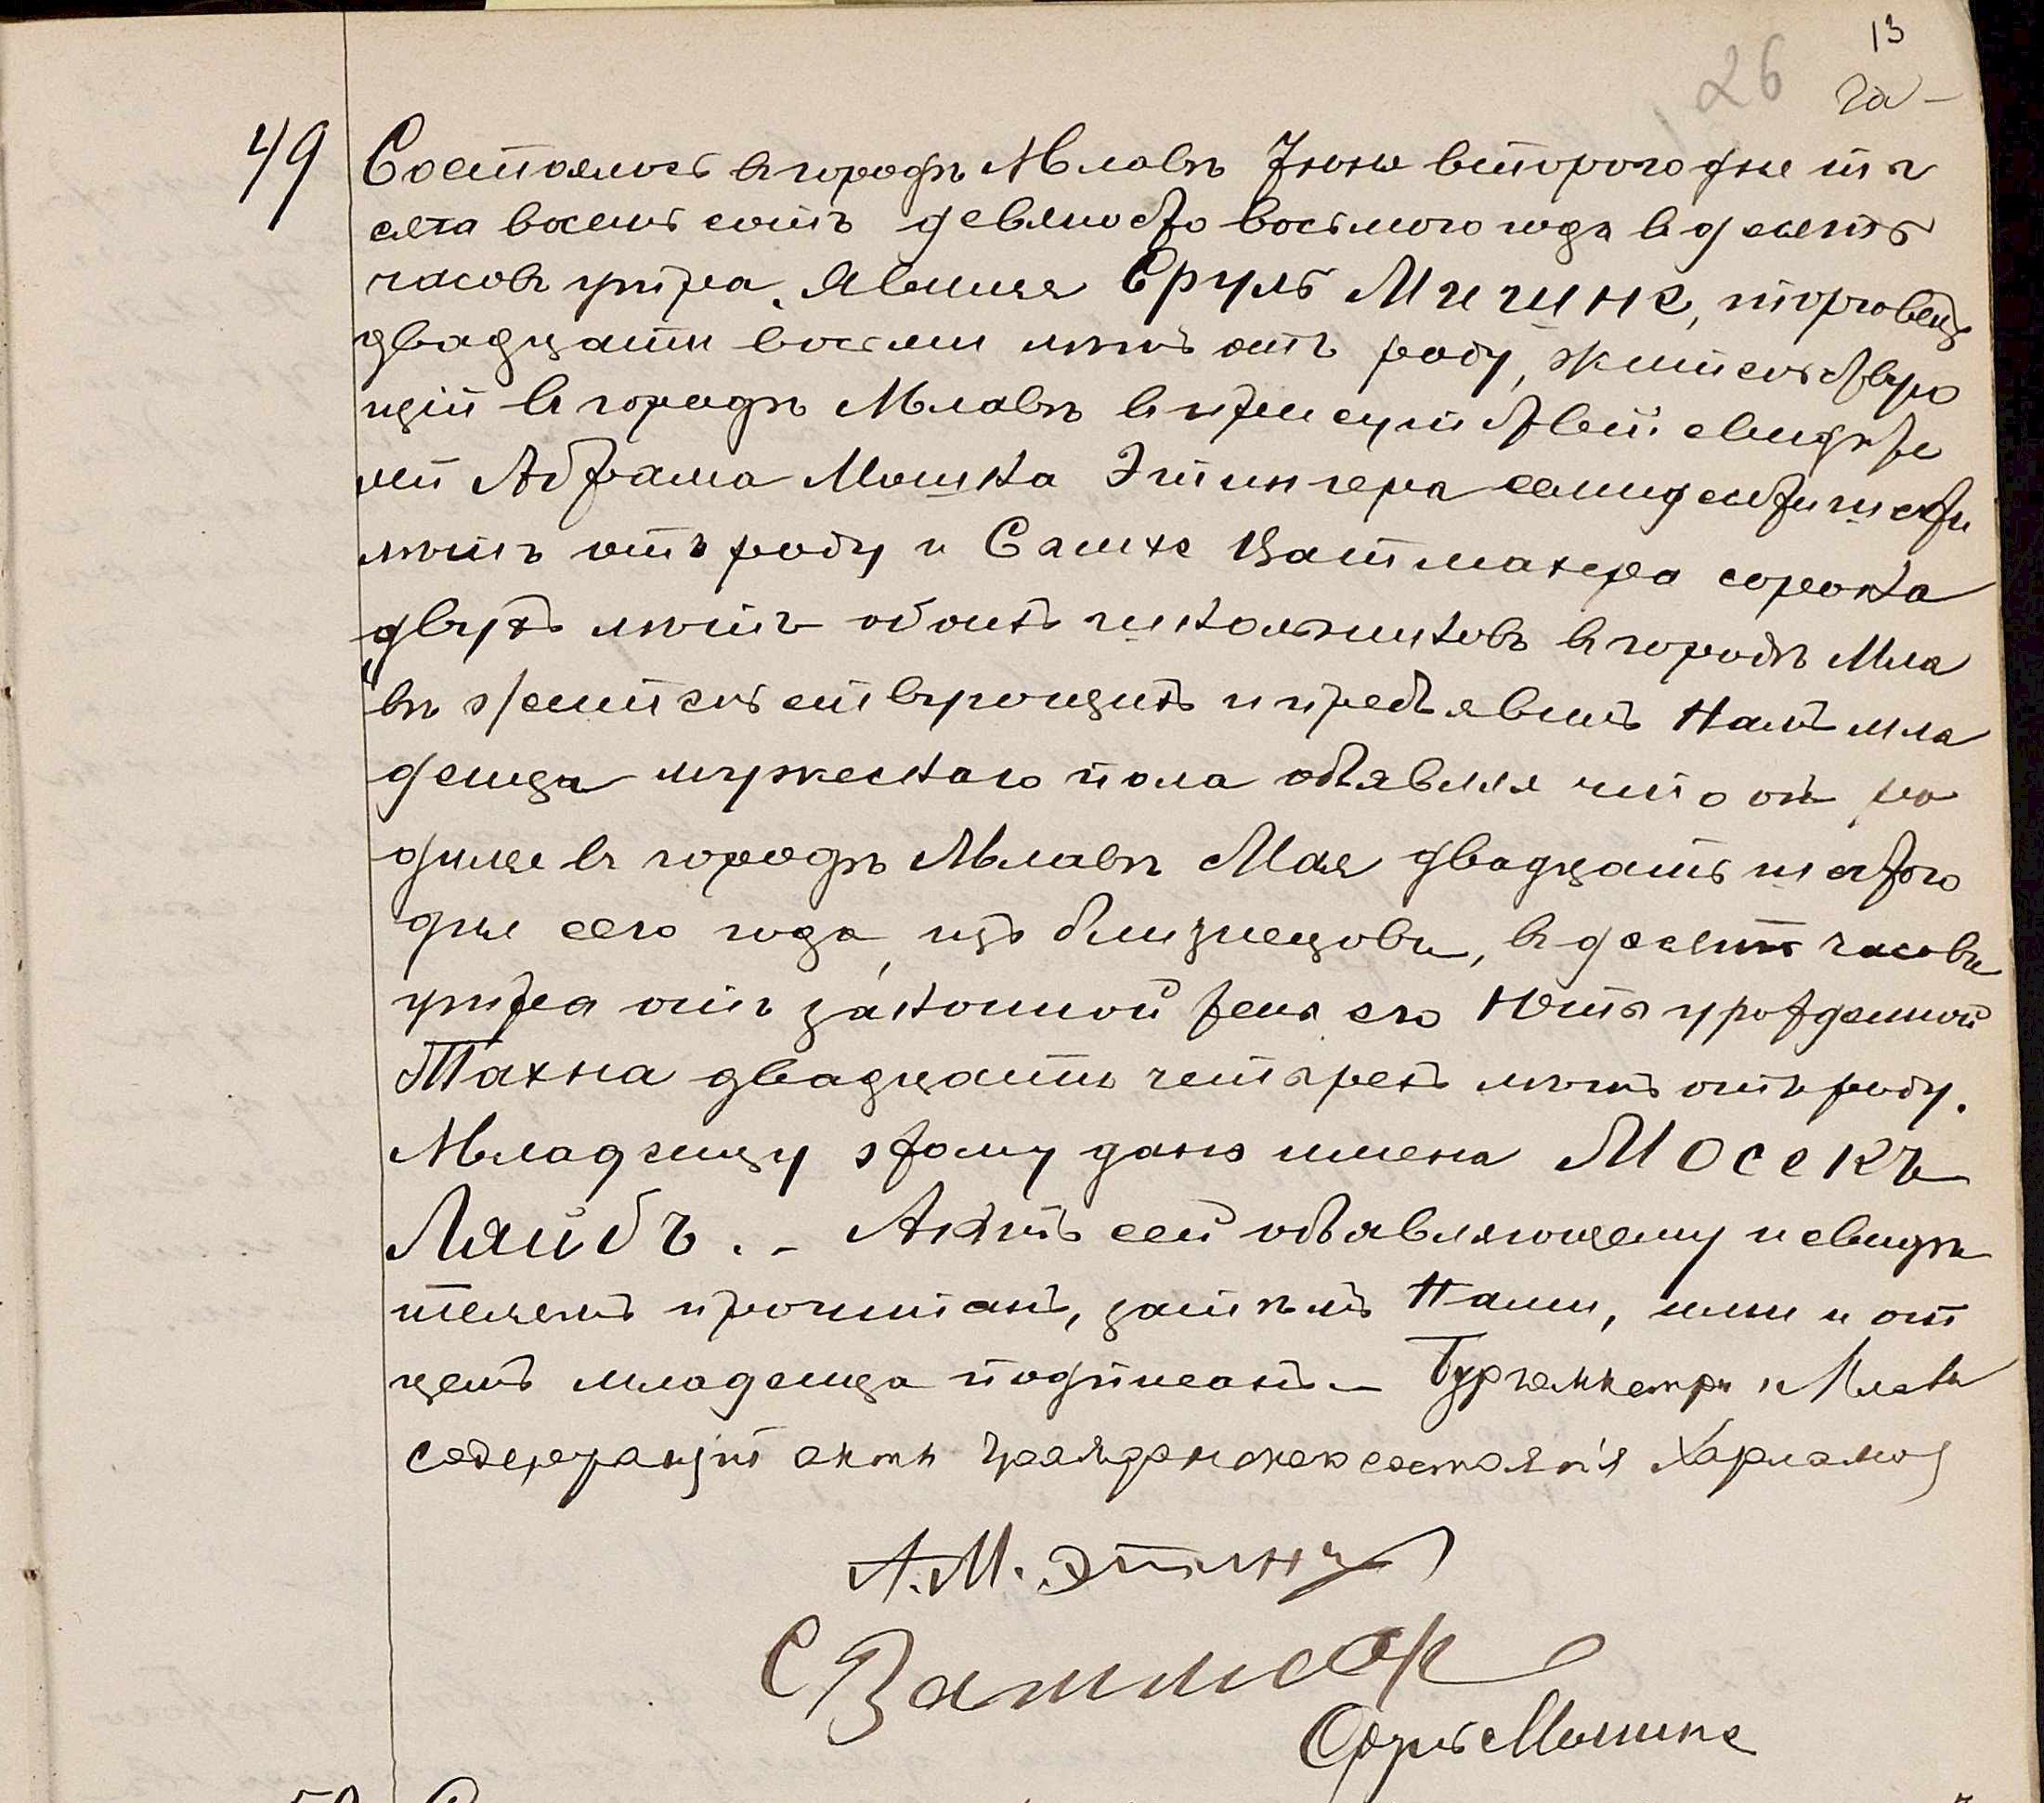 13
26
49
Состоялось въ городѣ Млавѣ Іюня второго дня ты
сяча восемь сотъ девяносто восьмого года въ десять
часовъ утра. Явился Сруль Мишне, торговецъ
двадцати восьми лѣтъ отъ роду, жительствую
щій въ городѣ Млавѣ въ присутствіи свидѣте
лей Абрама Мошка Этингера семидесяти шести
лѣтъ отъ роду и Самхе Ватмахера сорока
двухъ лѣтъ обоихъ школьниковъ въ городѣ Мла
вѣ жительствующихъ и предъявилъ Намъ мла
денца мужескаго пола объявляя что онъ ро
дился въ городѣ Млавѣ Мая двадцать шестого
дня сего года, изъ близнецовъ, въ десять часовъ
утра отъ законной жены его Юты урожденной
Тахна двадцати четырехъ лѣтъ отъ роду.
Младенцу этому дано имена Мосекъ
Ляйбъ. - Актъ сей объявляющему и свидѣ
телямъ прочитанъ, затѣмъ Нами, ими и от
цемъ младенца подписанъ. - Бургомистръ г. Млавы
содержащій акты гражданскаго состоянія Харламов
А. М. Этинг
С Ватмах
Сруль Мишне
50